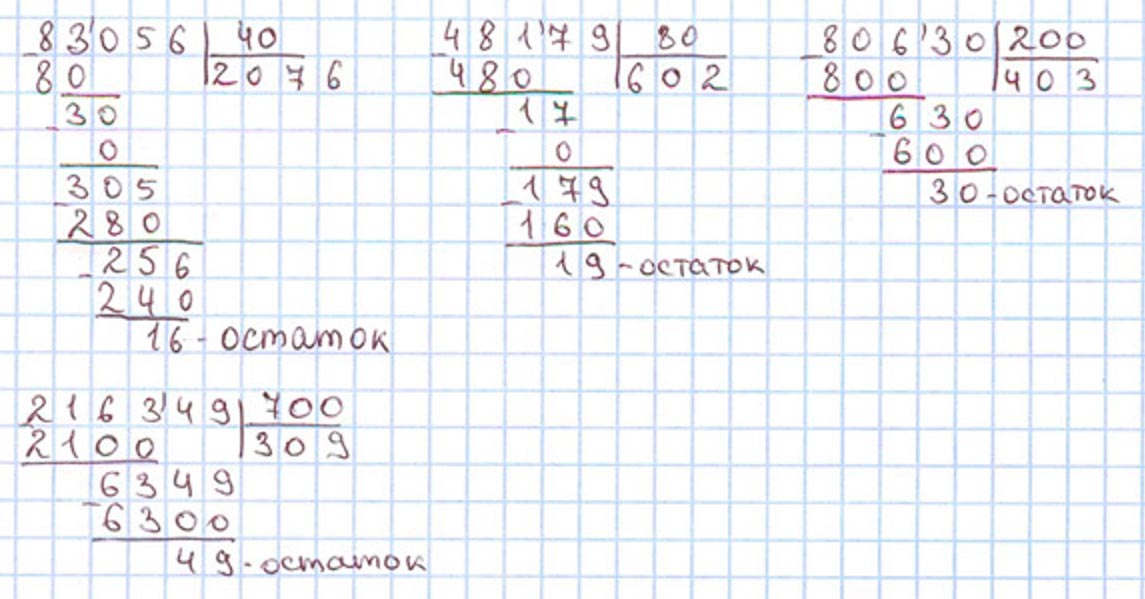 83'056 40
80 2076
30
0
305
280
256
240
16 - остаток
481'79 80
480 602
17
0
179
160
19 - остаток
806'30 200
800 403
630
600
30 - остаток
2163'49 700
2100 309
6349
6300
49 - остаток